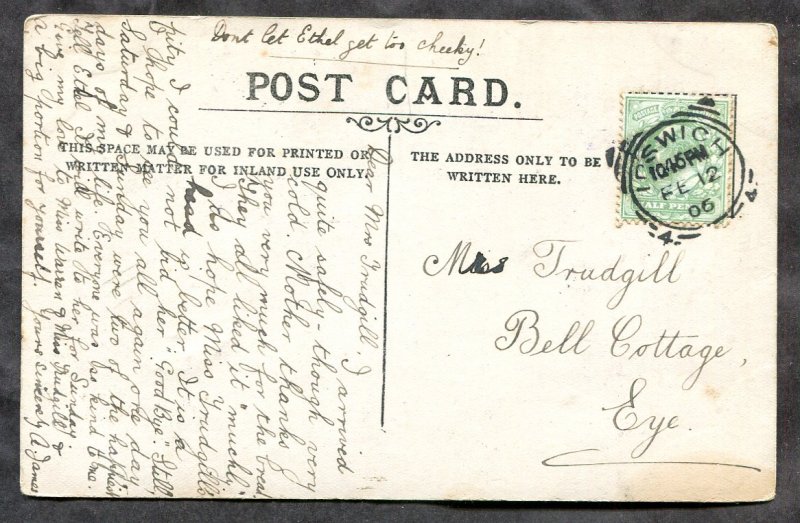 Dont let Ethel get too cheeky!
POST CARD.
THIS SPACE MAY BE USED FOR PRINTED OR
WRITTEN MATTER FOR INLAND USE ONLY.
THE ADDRESS ONLY TO BE
WRITTEN HERE.
Dear Mrs Trudgill. I arrived
quite safely - though very
cold. Mother thanks
you very much for the
They all liked it "muchly"
I do hope Miss Trudgill's
head is better. It is a
pity I could not bid her "Good Bye". Still
I hope to see you all again one day.
Saturday & Sunday were two of the happiest
days of my life. Everyone was so kind to me.
Tell Ethel I will write to her for Sunday.
Give my love to Miss Warren & Miss Trudgill &
a big portion for yourself. Yours sincerely A James
POSTAGE
HALF PENNY
IPSWICH
10.45 PM
FE 12
06
4
Mrs Trudgill
Bell Cottage,
Eye.